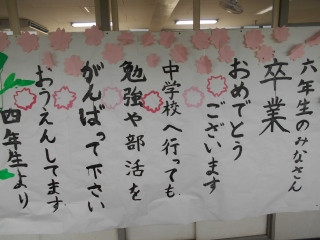 六年生のみなさん
卒業
おめでとう
ございます
中学校へ行っても
勉強や部活を
がんばって下さい
おうえんしてます
四年生より